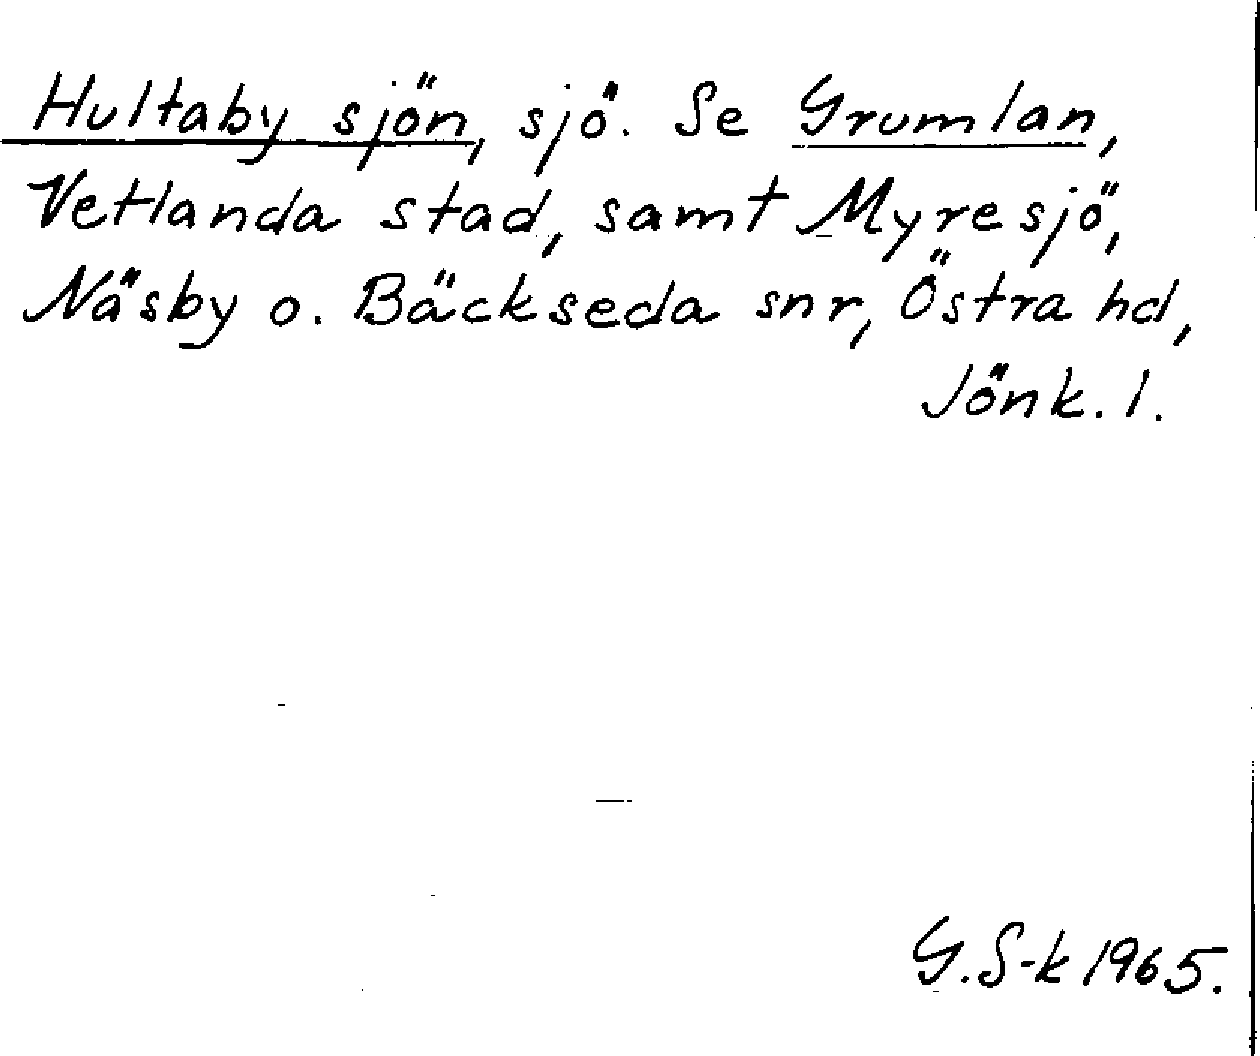 Hultaby sjön, sjö. Se Grumlan,
Vetlanda stad, samt Myresjö,
Näsby o. Bäckseda snr, Östra hd,
Jönk. l.
G. S-k 1965.